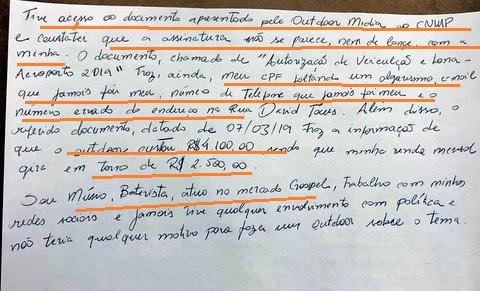 Tive acesso ao documento apresentado pela Outdoor Midia ao CNMP
e constatei que a assinatura não se parece, nem de longe, com a
minha. O documento, chamado de "Autorização de Veiculação e Lona-
Aeroporto 2019" traz, ainda, meu CPF faltando um algarismo, e-mail
que jamais foi meu, número de Telefone que jamais foi meu e o
número errado do endereço na Rua David Tows. Além disso, o
referido documento, datado de 07/03/19 traz a informação de
que o outdoor custou R$4.100,00 sendo que minha renda mensal
gira em torno de R$ 2.500,00.
Sou Músico, Baterista, atuo no mercado Gospel, Trabalho com minhas
redes sociais e jamais tive qualquer envolvimento com política e
não teria qualquer motivo para fazer um outdoor sobre o tema.